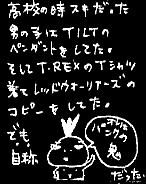 高校の時スキだった
男の子はTILTの
ペンダントをしてた。
そしてT.REXのTシャツ
着てレッドウォーリアーズの
コピーをしてた。
でも、
自称
オレは
パンクの
鬼
だった